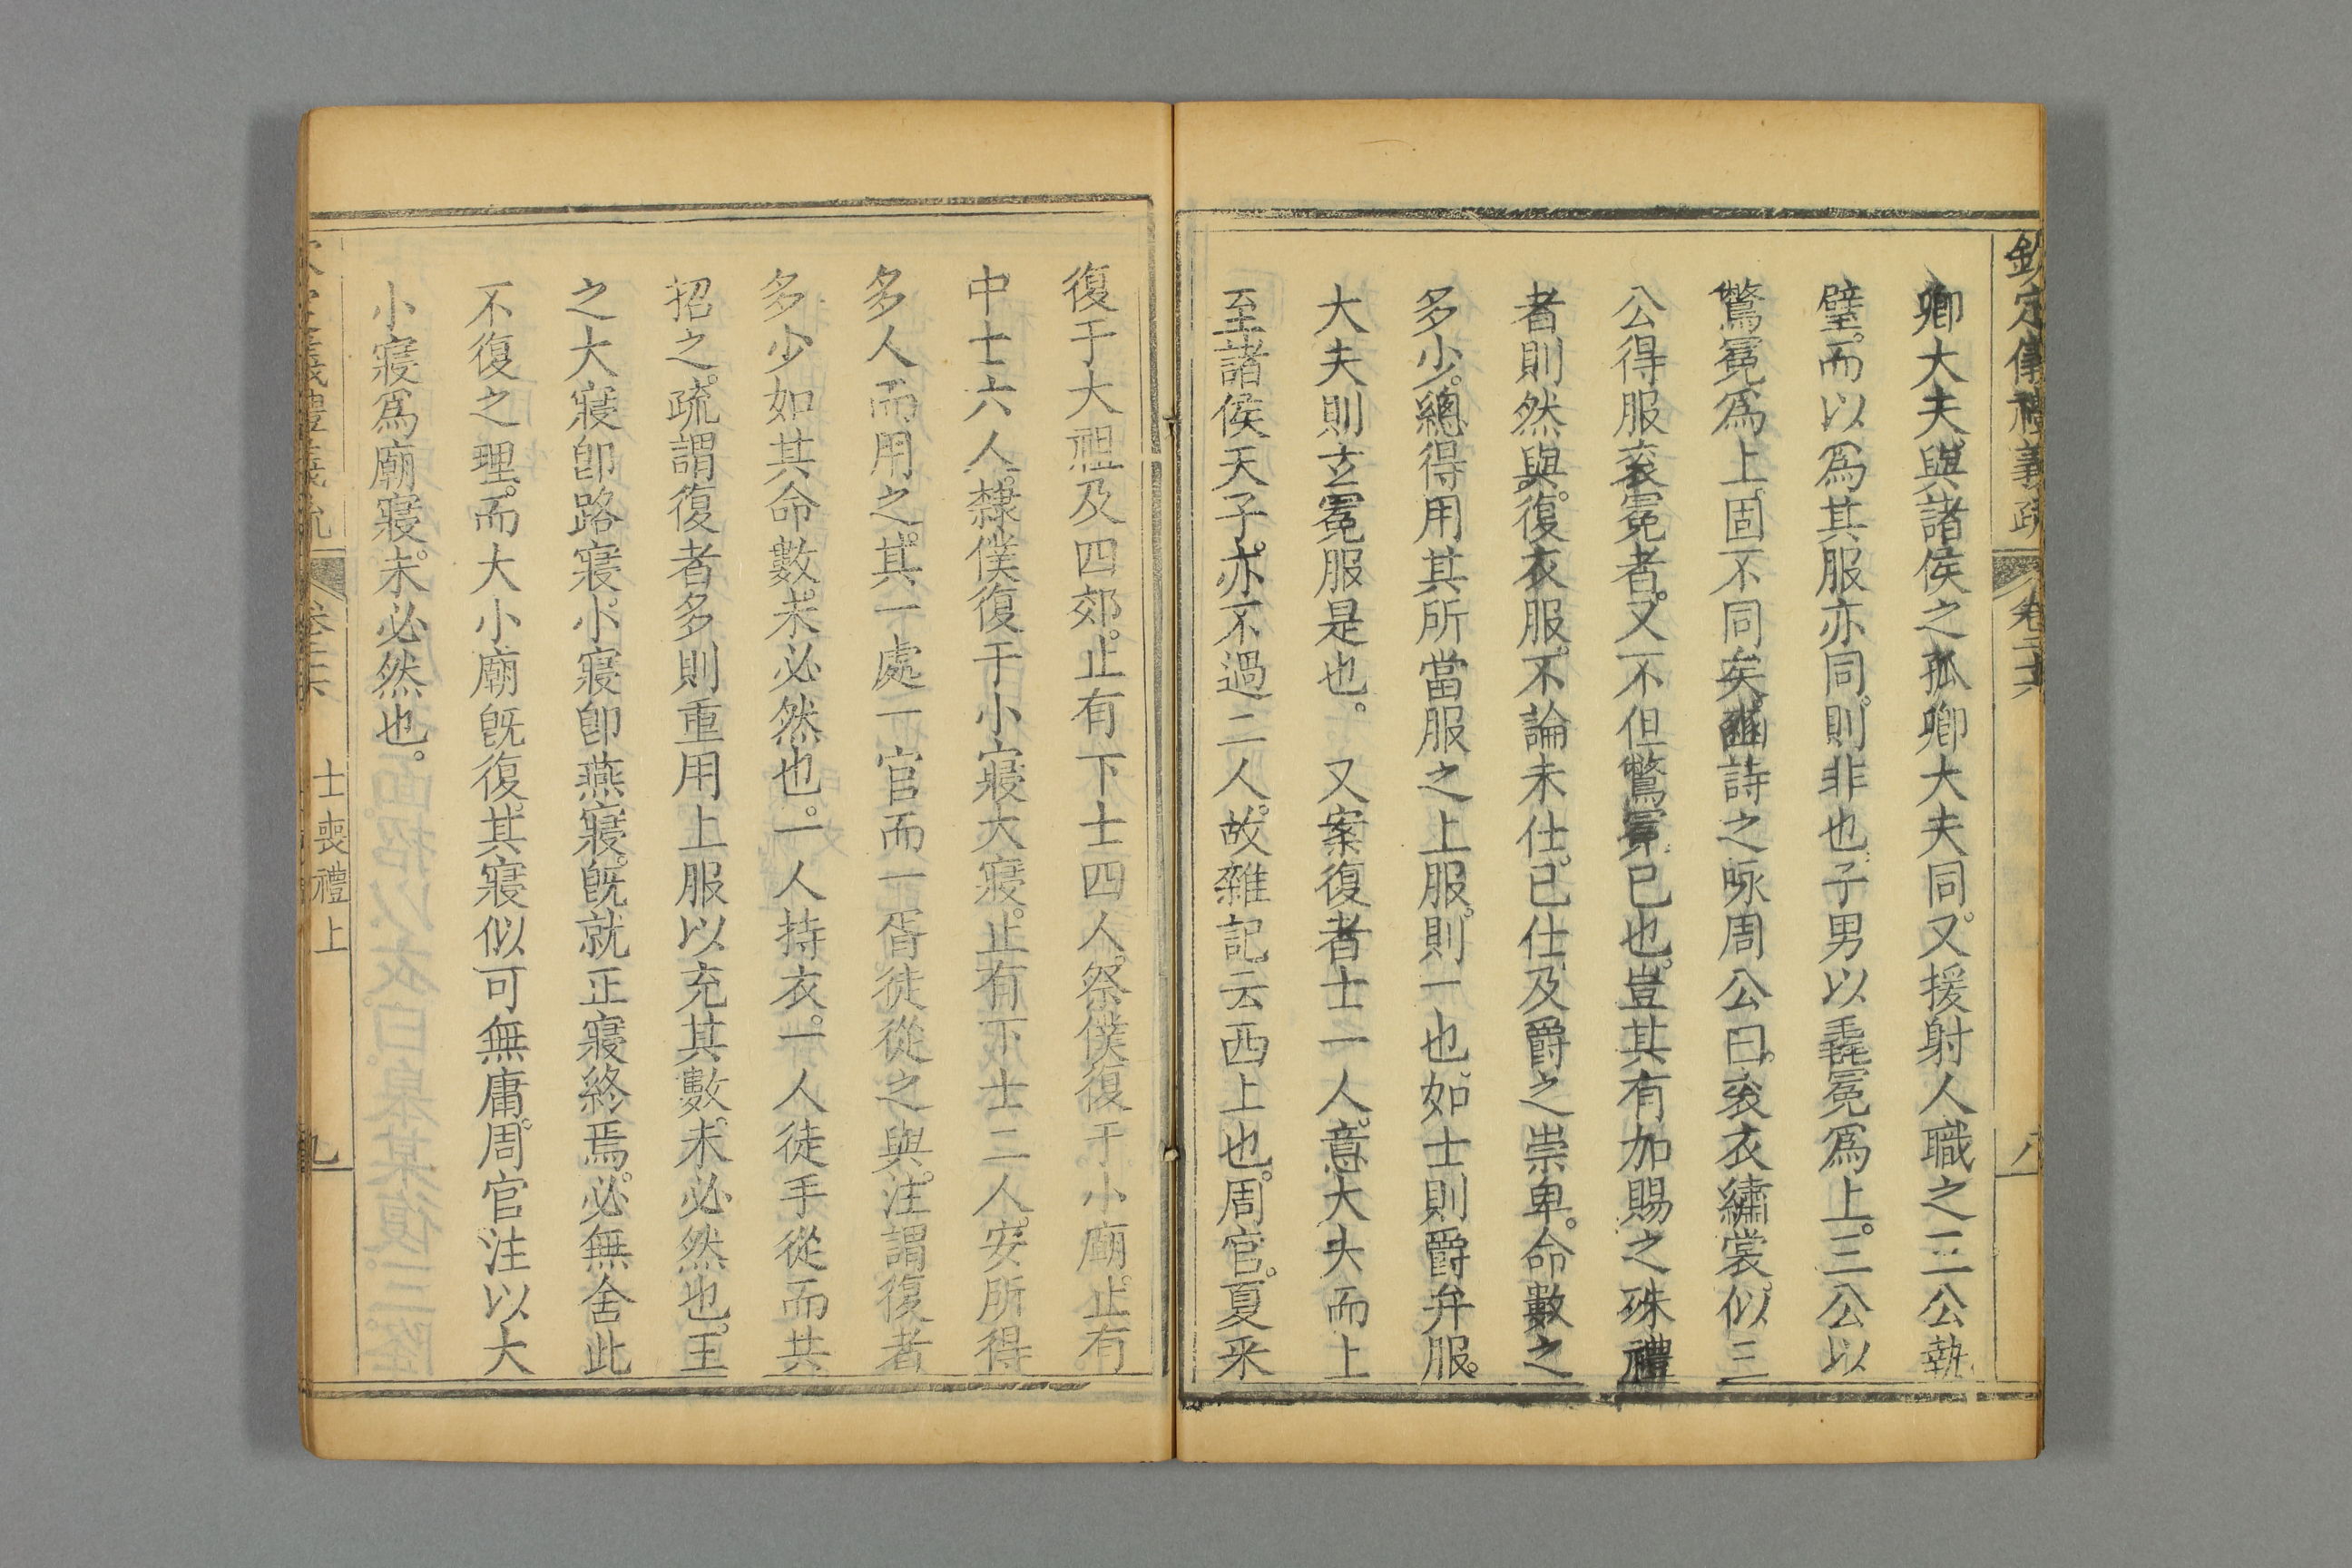 欽定儀禮義疏 卷二十六 八
卿大夫與諸侯之孤卿大夫同又援射人職之三公執
璧而以爲其服亦同則非也子男以毳冕爲上三公以
鷩冕爲上固不同矣豳詩之咏周公曰衮衣繡裳似三
公得服衮冕者又不但鷩冕已也豈其有加賜之殊禮
者則然與復衣服不論未仕已仕及爵之崇卑命數之
多少總得用其所當服之上服則一也如士則爵弁服
大夫則玄冕服是也 又案復者士一人意大夫而上
至諸侯天子亦不過二人故雜記云西上也周官夏采
復于大祖及四郊止有下士四人祭僕復于小廟止有
中士六人隸僕復于小寢大寢止有下士二人安所得
多人而用之其一處一官而一胥徒從之與注謂復者
多少如其命數未必然也一人持衣一人徒手從而共
招之疏謂復者多則重用上服以充其數未必然也王
之大寢卽路寢小寢卽燕寢旣就正寢終焉必無舍此
不復之理而大小廟旣復其寢似可無庸周官注以大
小寢爲廟寢未必然也
士喪禮上 九